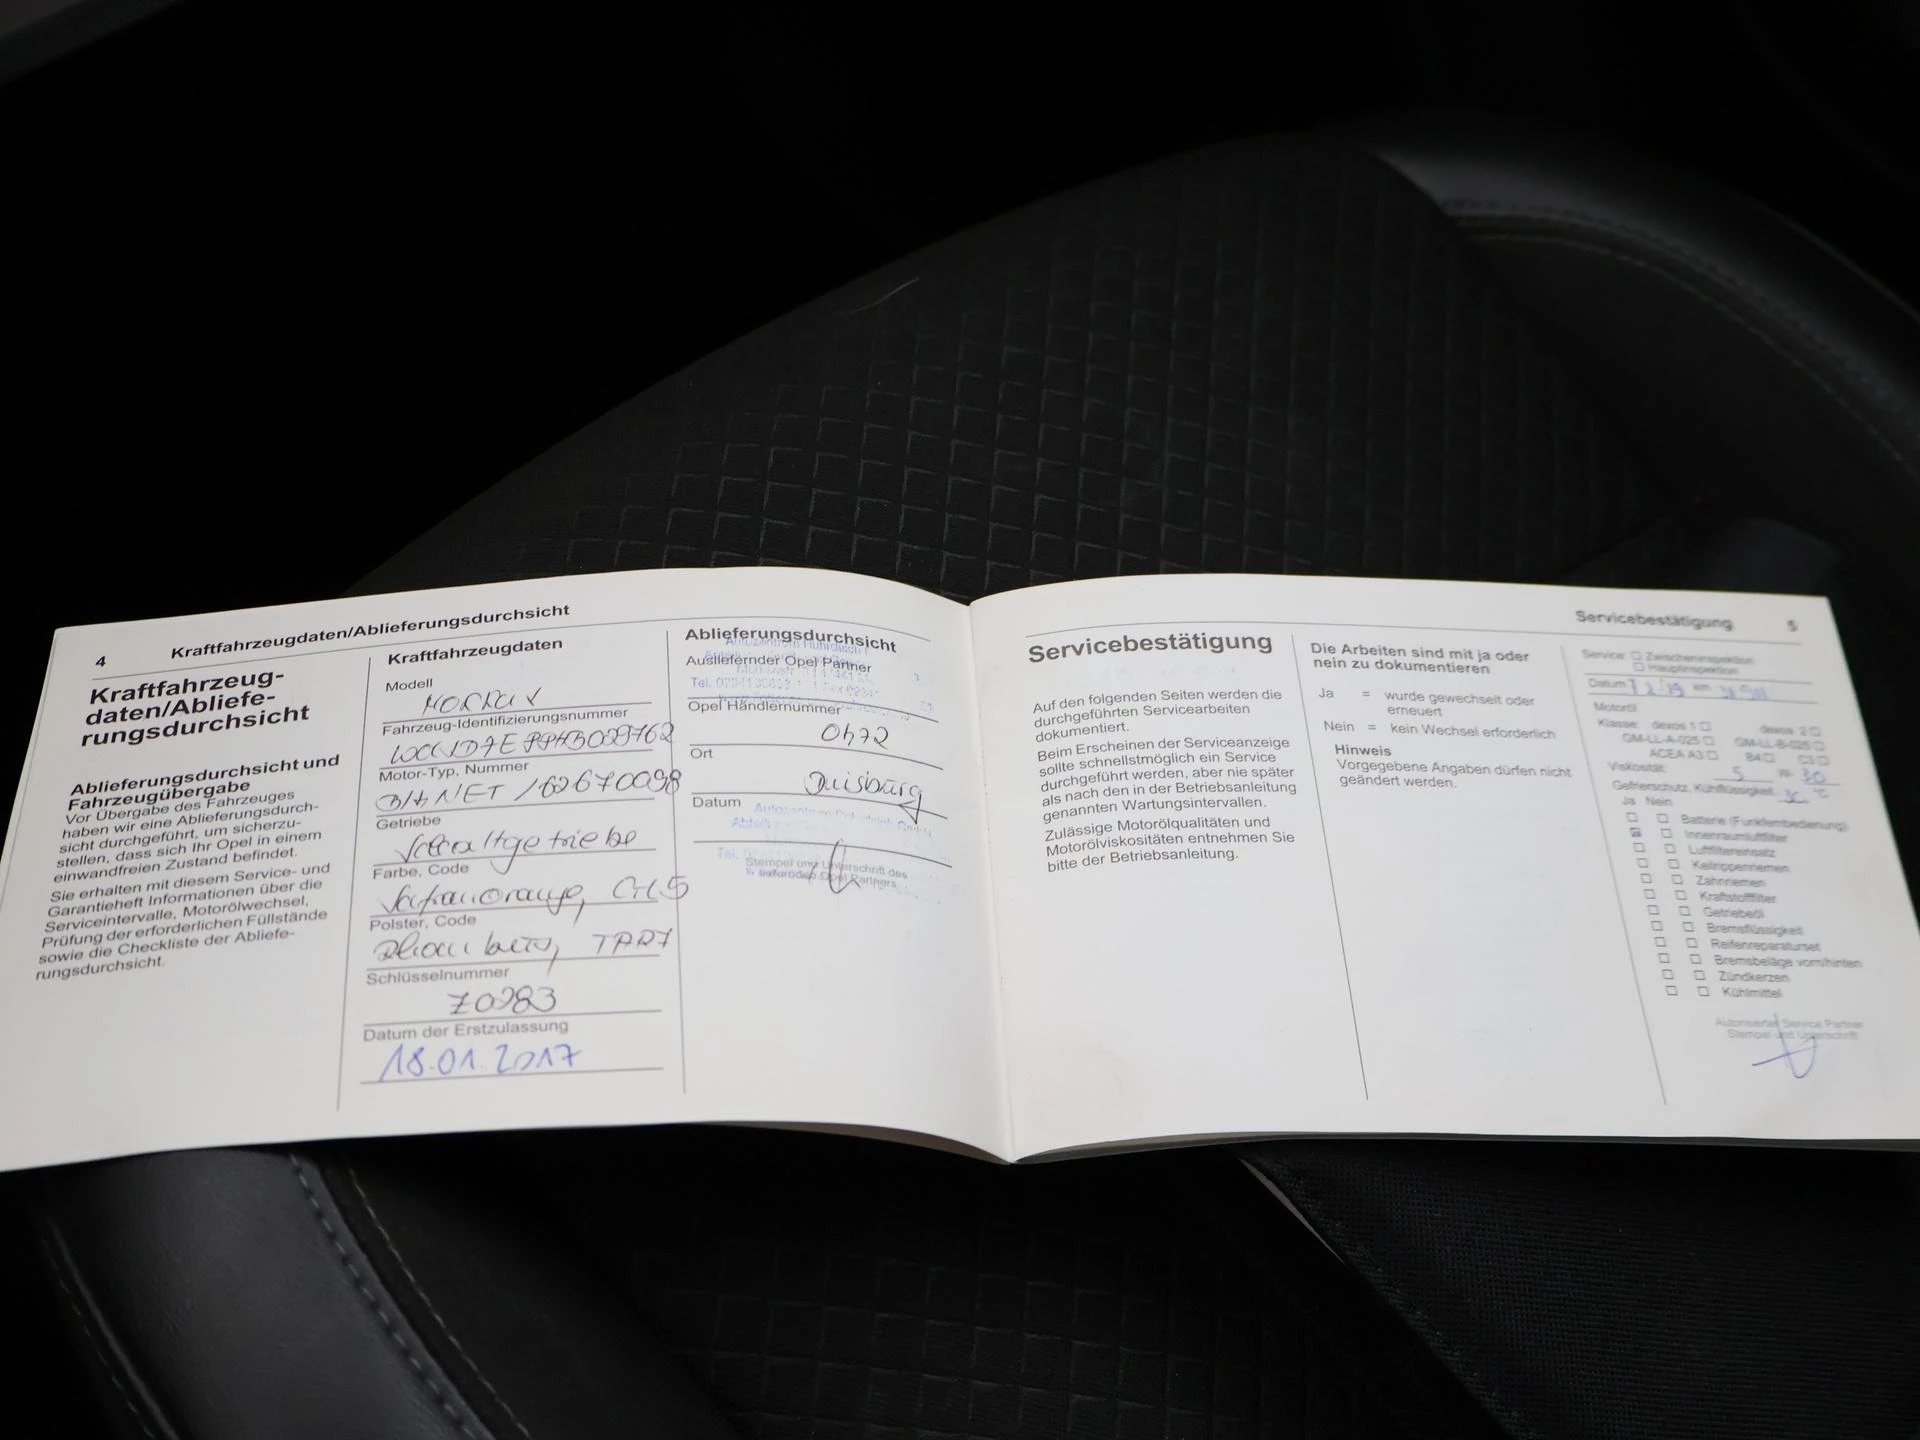 4
Kraftfahrzeugdaten/Ablieferungsdurchsicht
Kraftfahrzeug-
daten/Abliefe-
rungsdurchsicht
Ablieferungsdurchsicht und
Fahrzeugübergabe
Vor Übergabe des Fahrzeuges
haben wir eine Ablieferungsdurch-
sicht durchgeführt, um sicherzu-
stellen, dass sich Ihr Opel in einem
einwandfreien Zustand befindet.
Sie erhalten mit diesem Service- und
Garantieheft Informationen über die
Serviceintervalle, Motorölwechsel,
Prüfung der erforderlichen Füllstände
sowie die Checkliste der Abliefe-
rungsdurchsicht.
Kraftfahrzeugdaten
Modell
Fahrzeug-Identifizierungsnummer
Motor-Typ, Nummer
Getriebe
Schaltgetriebe
Farbe, Code
Polster, Code
Schlüsselnummer
Z0283
Datum der Erstzulassung
18.01.2017
Ablieferungsdurchsicht
Ausliefernder Opel Partner
Opel Händlernummer
Ort
Duisburg
Datum
Stempel und Unterschrift des
ausliefernden Opel Partners
Servicebestätigung
5
Servicebestätigung
Auf den folgenden Seiten werden die
durchgeführten Servicearbeiten
dokumentiert.
Beim Erscheinen der Serviceanzeige
sollte schnellstmöglich ein Service
durchgeführt werden, aber nie später
als nach den in der Betriebsanleitung
genannten Wartungsintervallen.
Zulässige Motorölqualitäten und
Motorölviskositäten entnehmen Sie
bitte der Betriebsanleitung.
Die Arbeiten sind mit ja oder
nein zu dokumentieren
Ja = wurde gewechselt oder
erneuert
Nein = kein Wechsel erforderlich
Hinweis
Vorgegebene Angaben dürfen nicht
geändert werden.
Service: Zwischeninspektion
Hauptinspektion
Datum km
Motoröl
Klasse: dexos 1 dexos 2
GM-LL-A-025 GM-LL-B-025
ACEA A3 B4 C3
Viskosität: 5 W- 30
Gefrierschutz, Kühlflüssigkeit °C
Ja Nein
Batterie (Funkfernbedienung)
Innenraumluftfilter
Luftfiltereinsatz
Keilrippenriemen
Zahnriemen
Kraftstofffilter
Getriebeöl
Bremsflüssigkeit
Reifenreparaturset
Bremsbeläge vorn/hinten
Zündkerzen
Kühlmittel
Autorisierter Service Partner
Stempel und Unterschrift